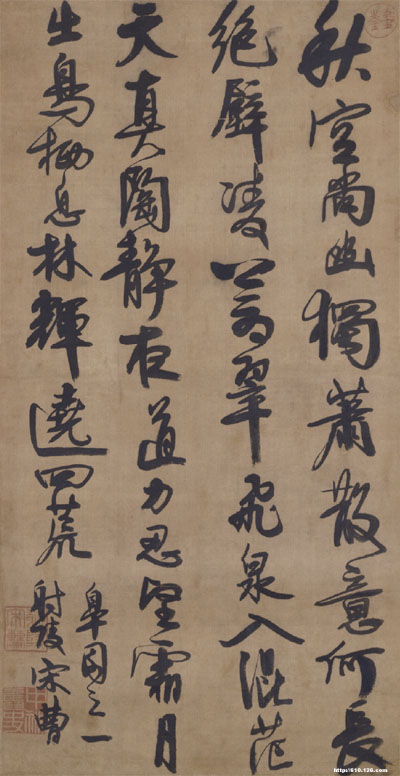 秋空尚幽獨蕭散意何長
絕壁凌翠飛泉入混茫
天真陶靜夜道力忍星霜月
出鳥栖息林輝遶四荒
皋園之一
射陵宋曹
http://610.126.com/